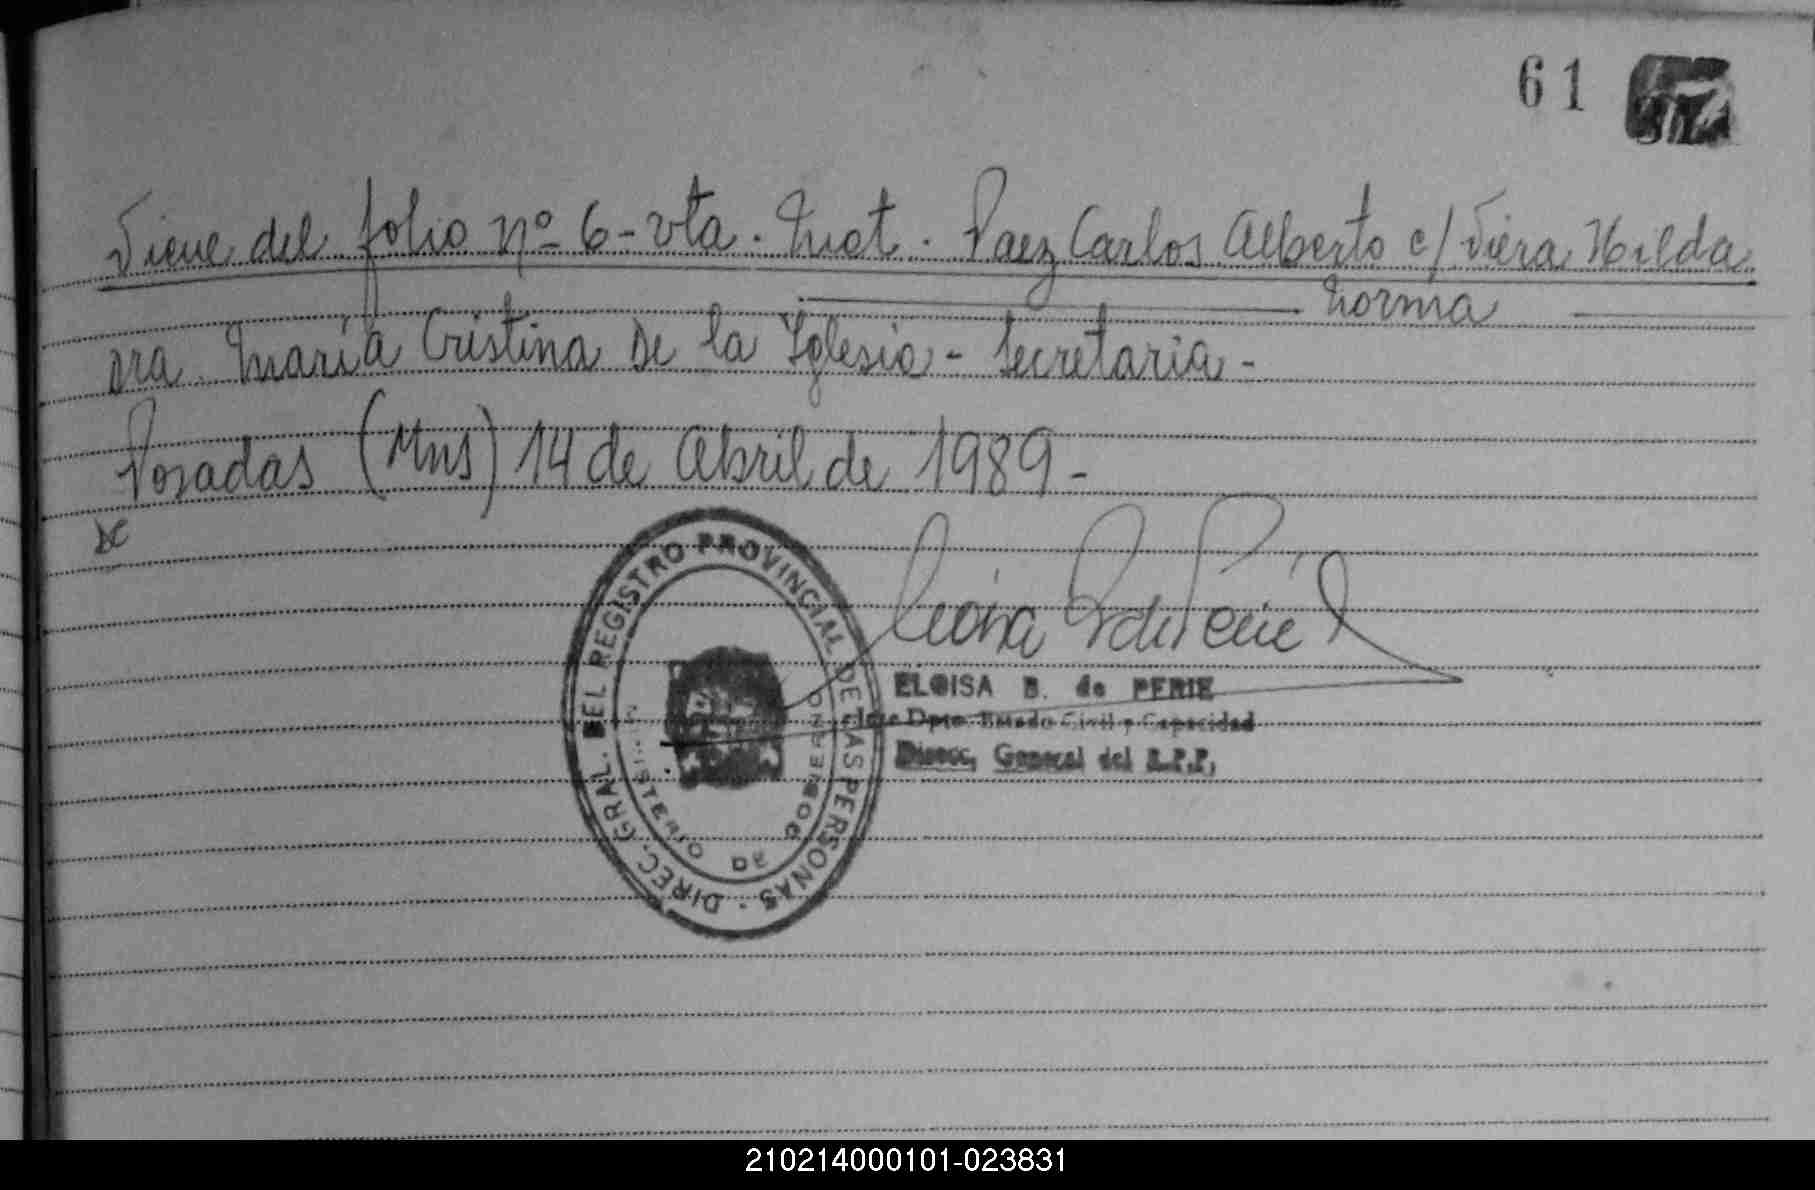 61
Viene del folio nº 6 - vta. Mat. Paez Carlos Alberto c/ Viera Hilda
Norma
Dra. María Cristina De la Iglesia - Secretaria -
Posadas (Mns) 14 de Abril de 1989 -
DIREC. GRAL. DEL REGISTRO PROVINCIAL DE LAS PERSONAS -
MINISTERIO DE GOBIERNO
ELOISA B. de PERIE
Jefe Dpto. Estado Civil y Capacidad
Direcc. General del R.P.P.
210214000101-023831